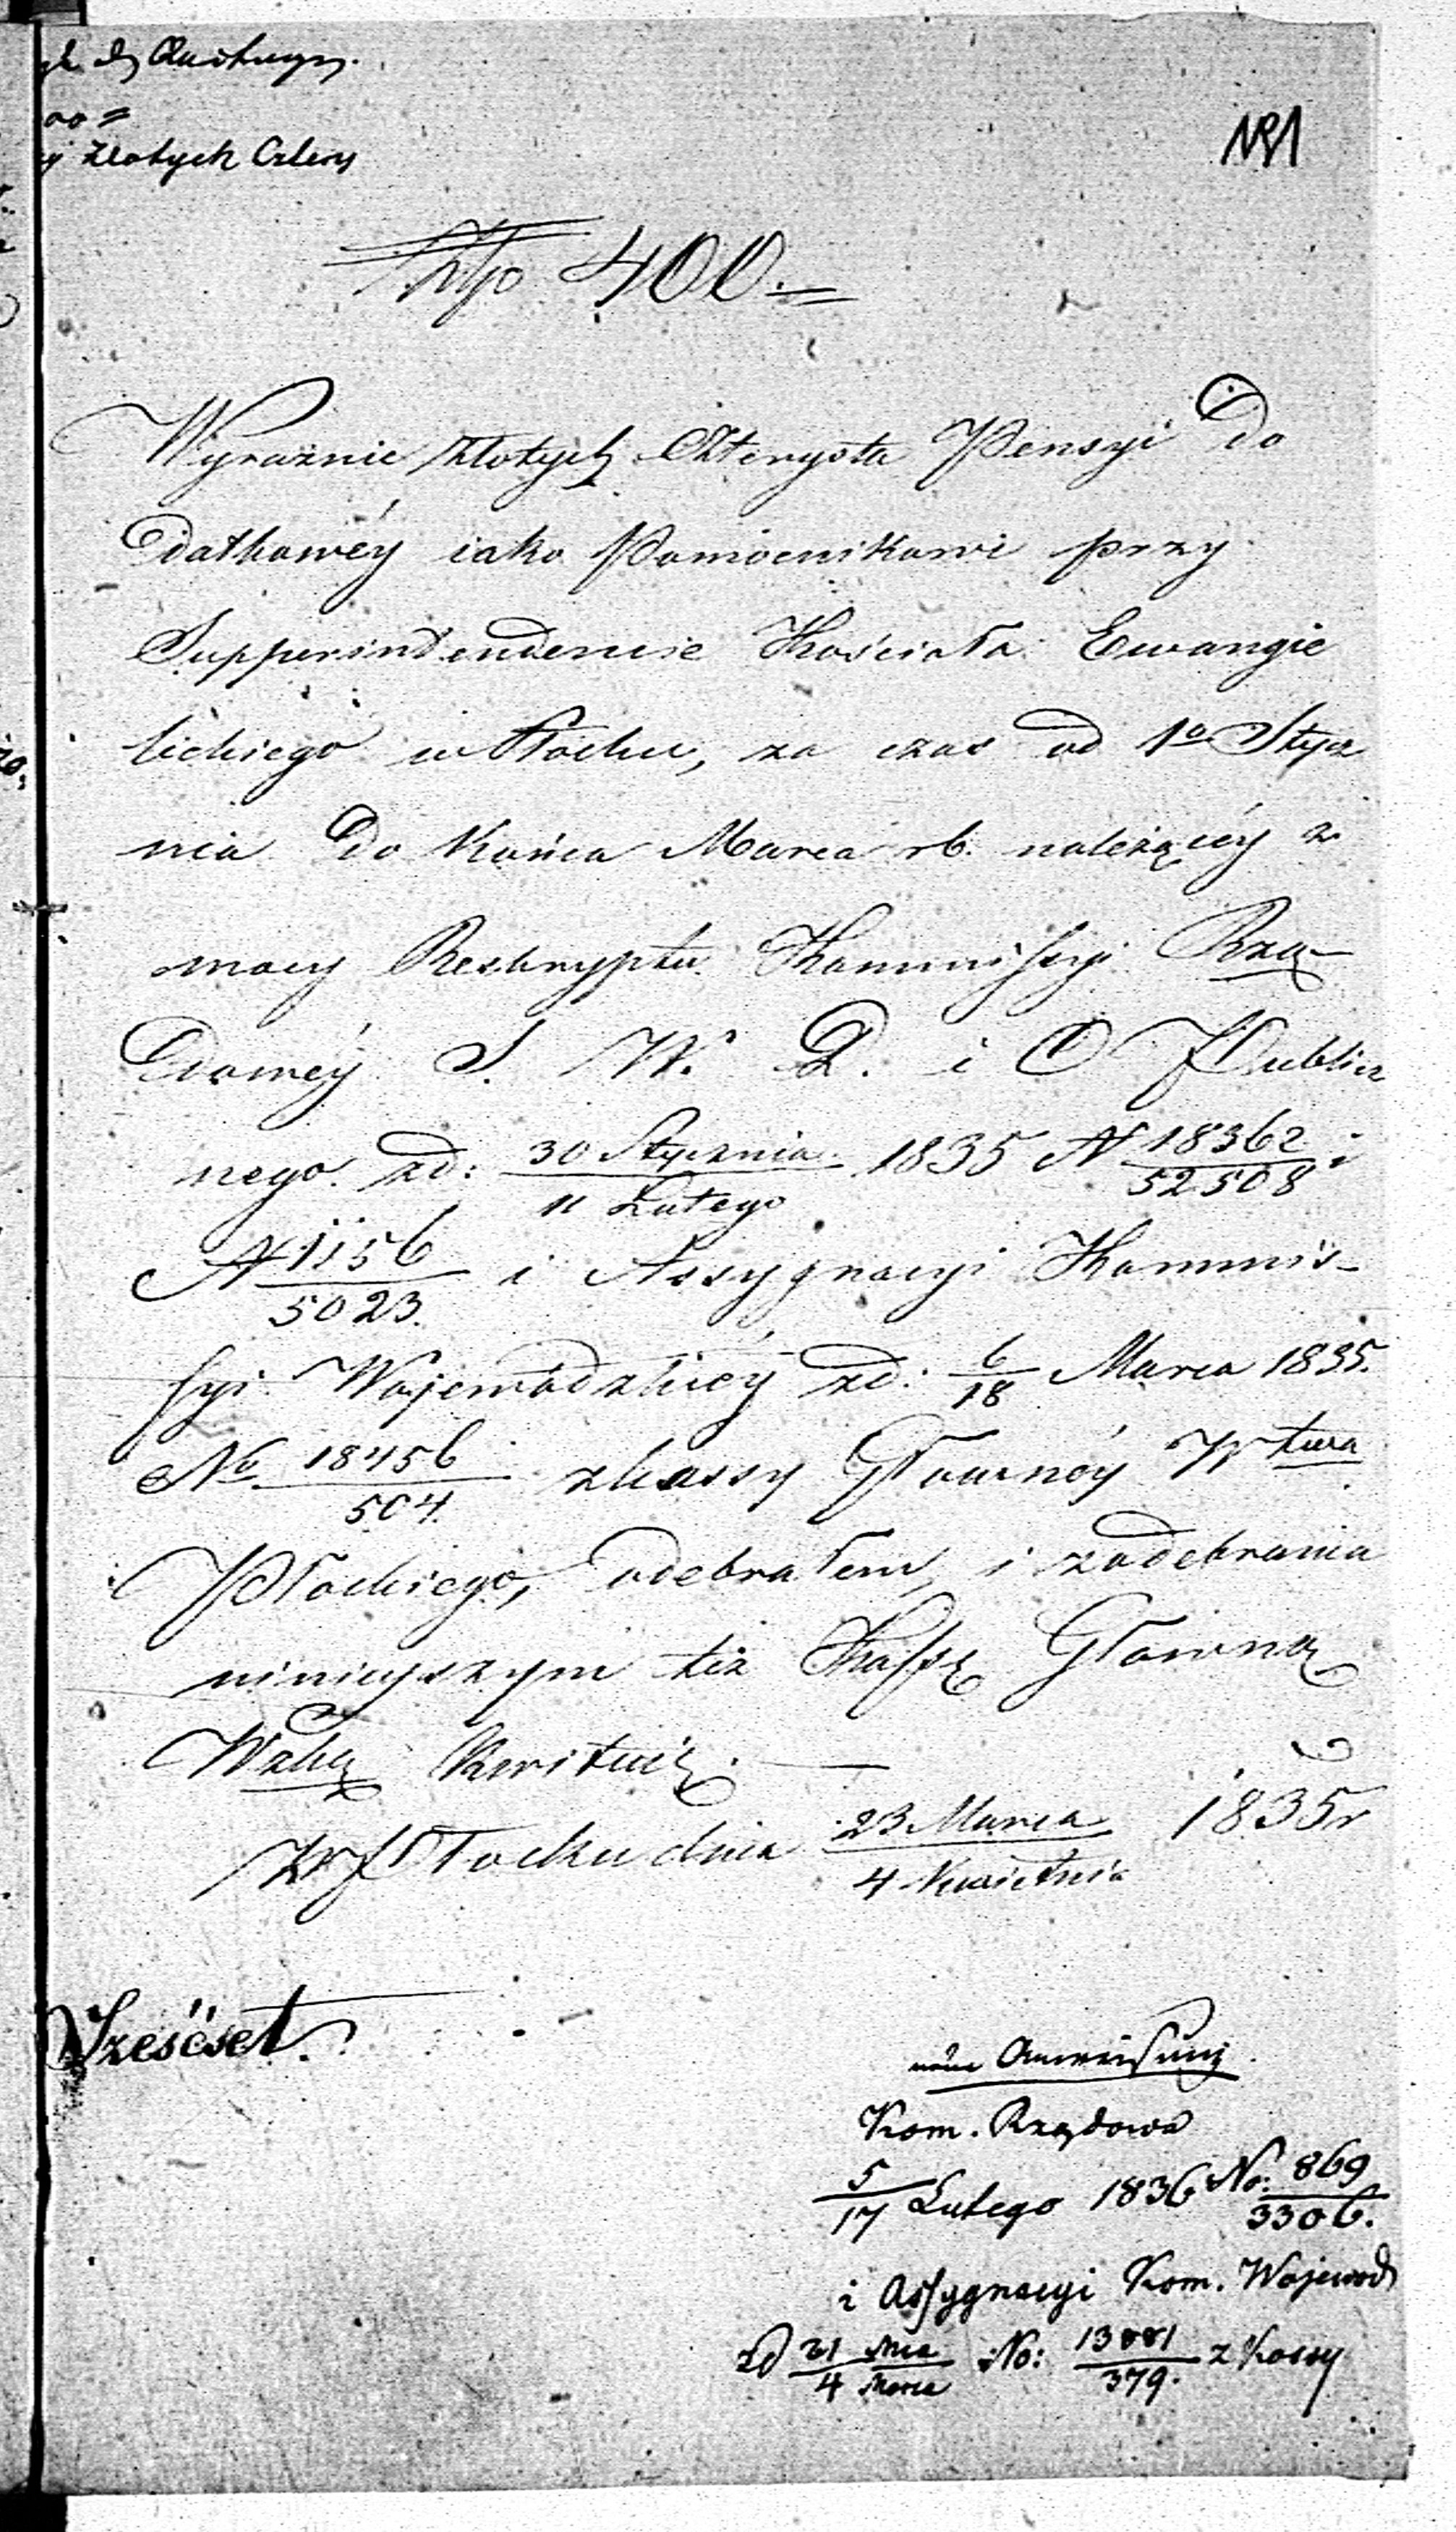 Złotych Cztery
Złp 400.=
Wyraźnie Złotych Czterysta Pensyi Do
datkowéy iako Pomocnikowi przy
Supperintendencie Kościoła Ewangie
lickiego w Płocku, za czas od 1o Stycz
nia do Końca Marca rb. należącéy z
mocy Reskryptu Kommissyi Rzą-
dowéy S. W. D. i O Publicz
nego zd: 30 Stycznia / 11 Lutego 1835 N 18362 / 52508 i
N 1156 / 5023. i Assygnacyi Kommis-
syi Wojewódzkiéy zd: 6/18 Marca 1835.
No 18456 / 504. zkassy Głównéy Wtwa
Płockiego, odebrałem, i zodebrania
ninieyszym też Kassę Główną
Wzką kwituię. —
W Płocku dnia 23 Marca / 4 Kwietnia 1835r
Sześćset.
Kom. Rządowa
5/17 Lutego 1836 No: 869 / 3306.
i Assygnacyi Kom. Wojewod
zd No: / 379. z Kassy